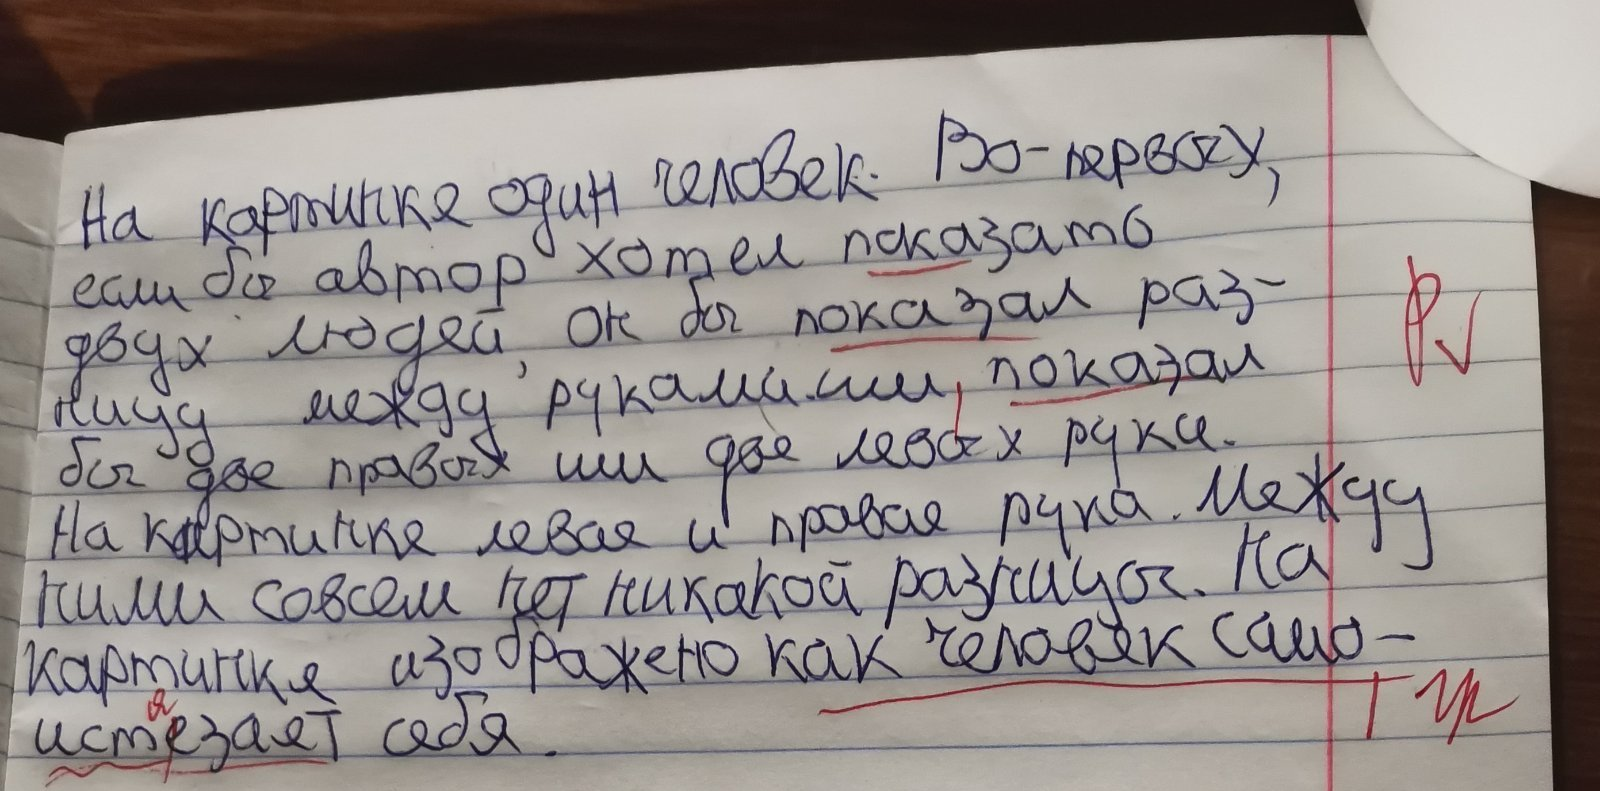 На картинке один человек. Во-первых,
если бы автор хотел показать
двух людей, он бы показал раз-
ницу между руками или, показал
бы две правых или две левых руки.
На картинке левая и правая рука. Между
ними совсем нет никакой разницы. На
картинке изображено как человек само-
истезает себя.
я
Р√
Гр